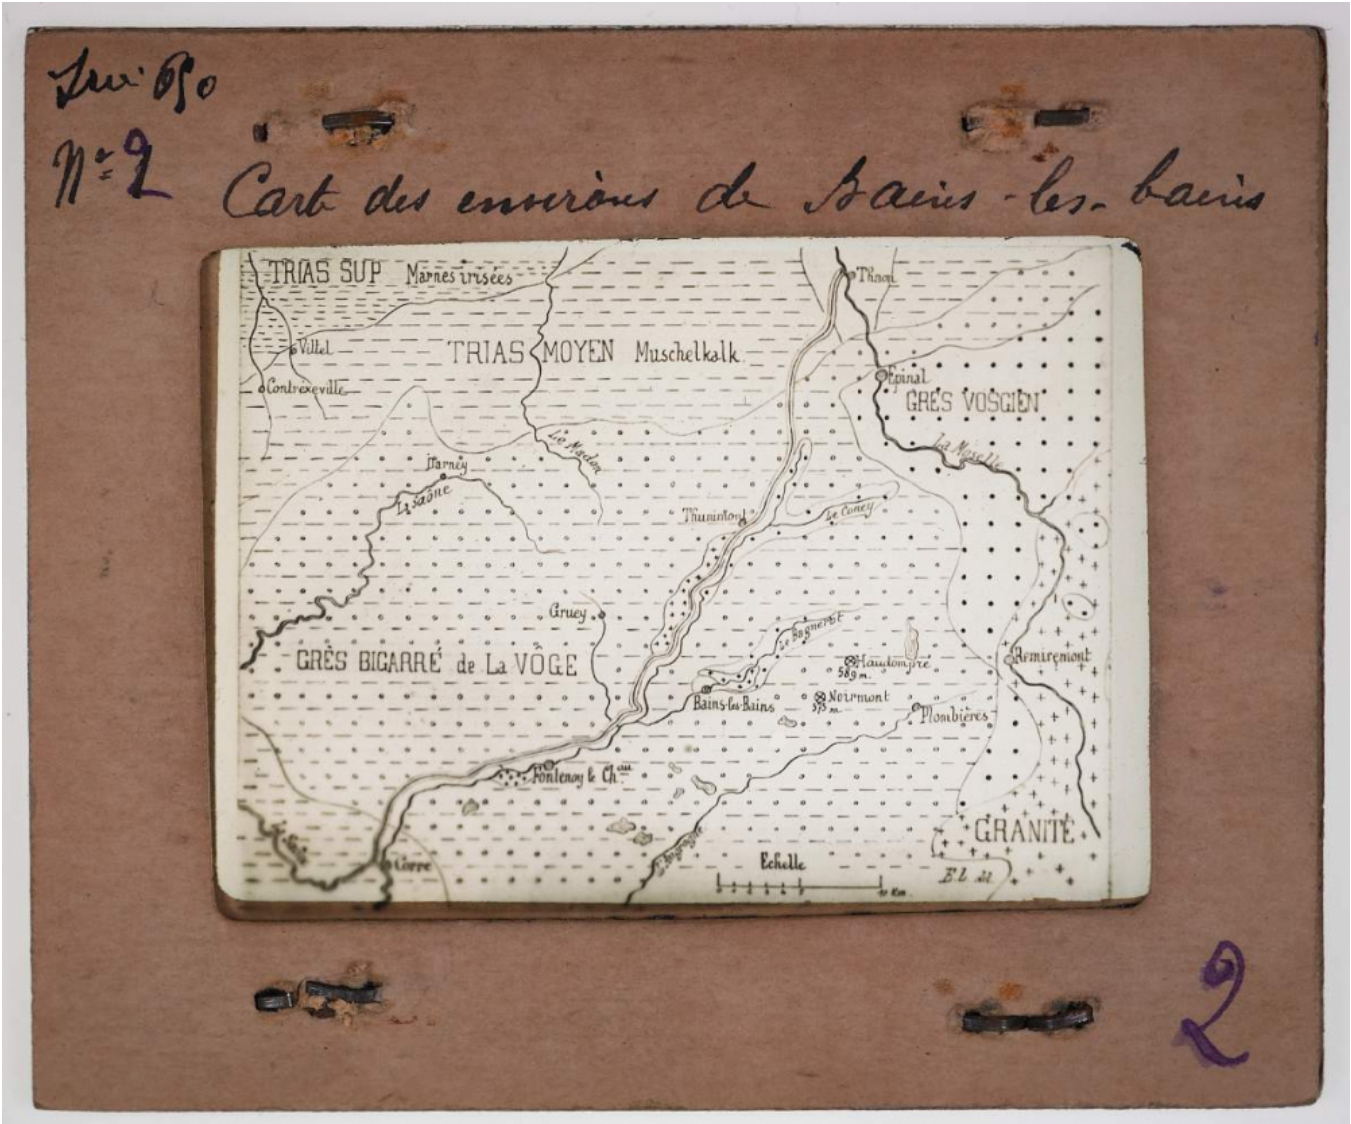 650
Nº 2
Cart des environs de Bains-les-bains
TRIAS SUP Marnes irisées
Thaon
Vittel
TRIAS MOYEN Muschelkalk
Contréxeville
Epinal
GRÈS VOSGIEN
Le Madon
La Moselle
Darney
La Saône
Thunimont
Le Coney
Gruey
Le Bagnerot
GRÈS BIGARRÉ de La VÔGE
Haudompré
589 m.
Remiremont
Bains-les-Bains
Noirmont
575 m
Plombières
Fontenoy le Ch.au
GRANITE
Corre
Echelle
Km
2